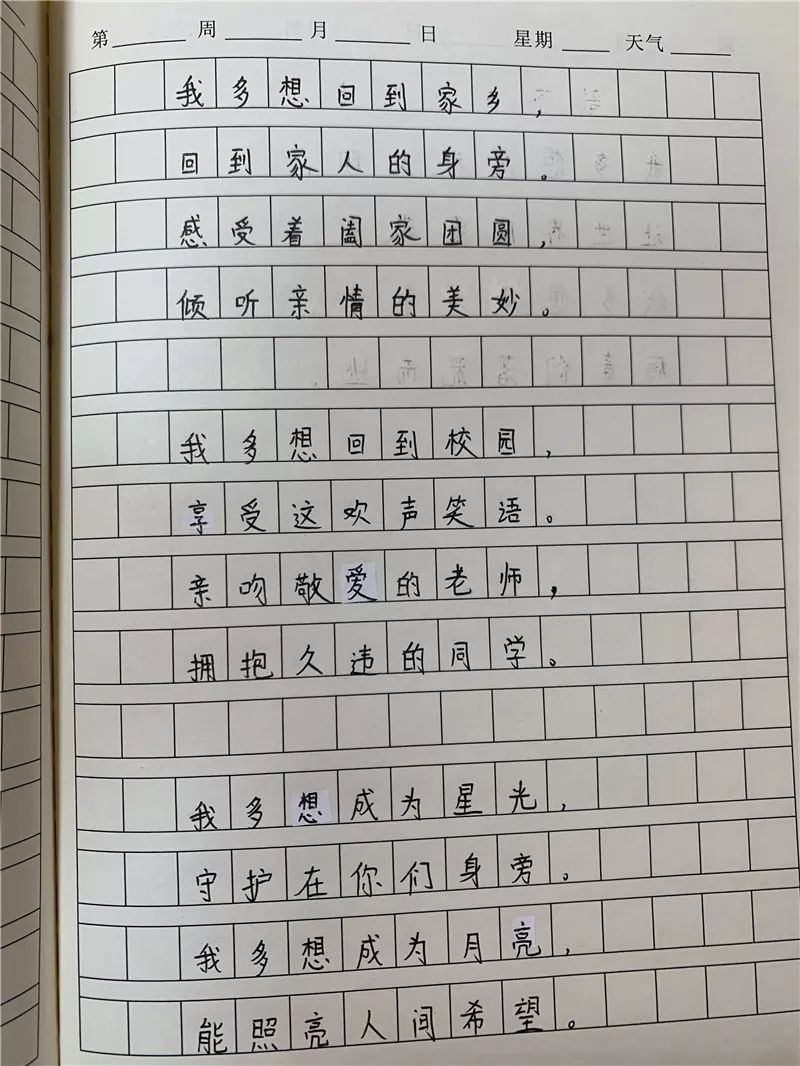 第 周 月 日 星期 天气
我多想回到家乡，
回到家人的身旁。
感受着阖家团圆，
倾听亲情的美妙。
我多想回到校园，
享受这欢声笑语。
亲吻敬爱的老师，
拥抱久违的同学。
我多想成为星光，
守护在你们身旁。
我多想成为月亮，
能照亮人间希望。